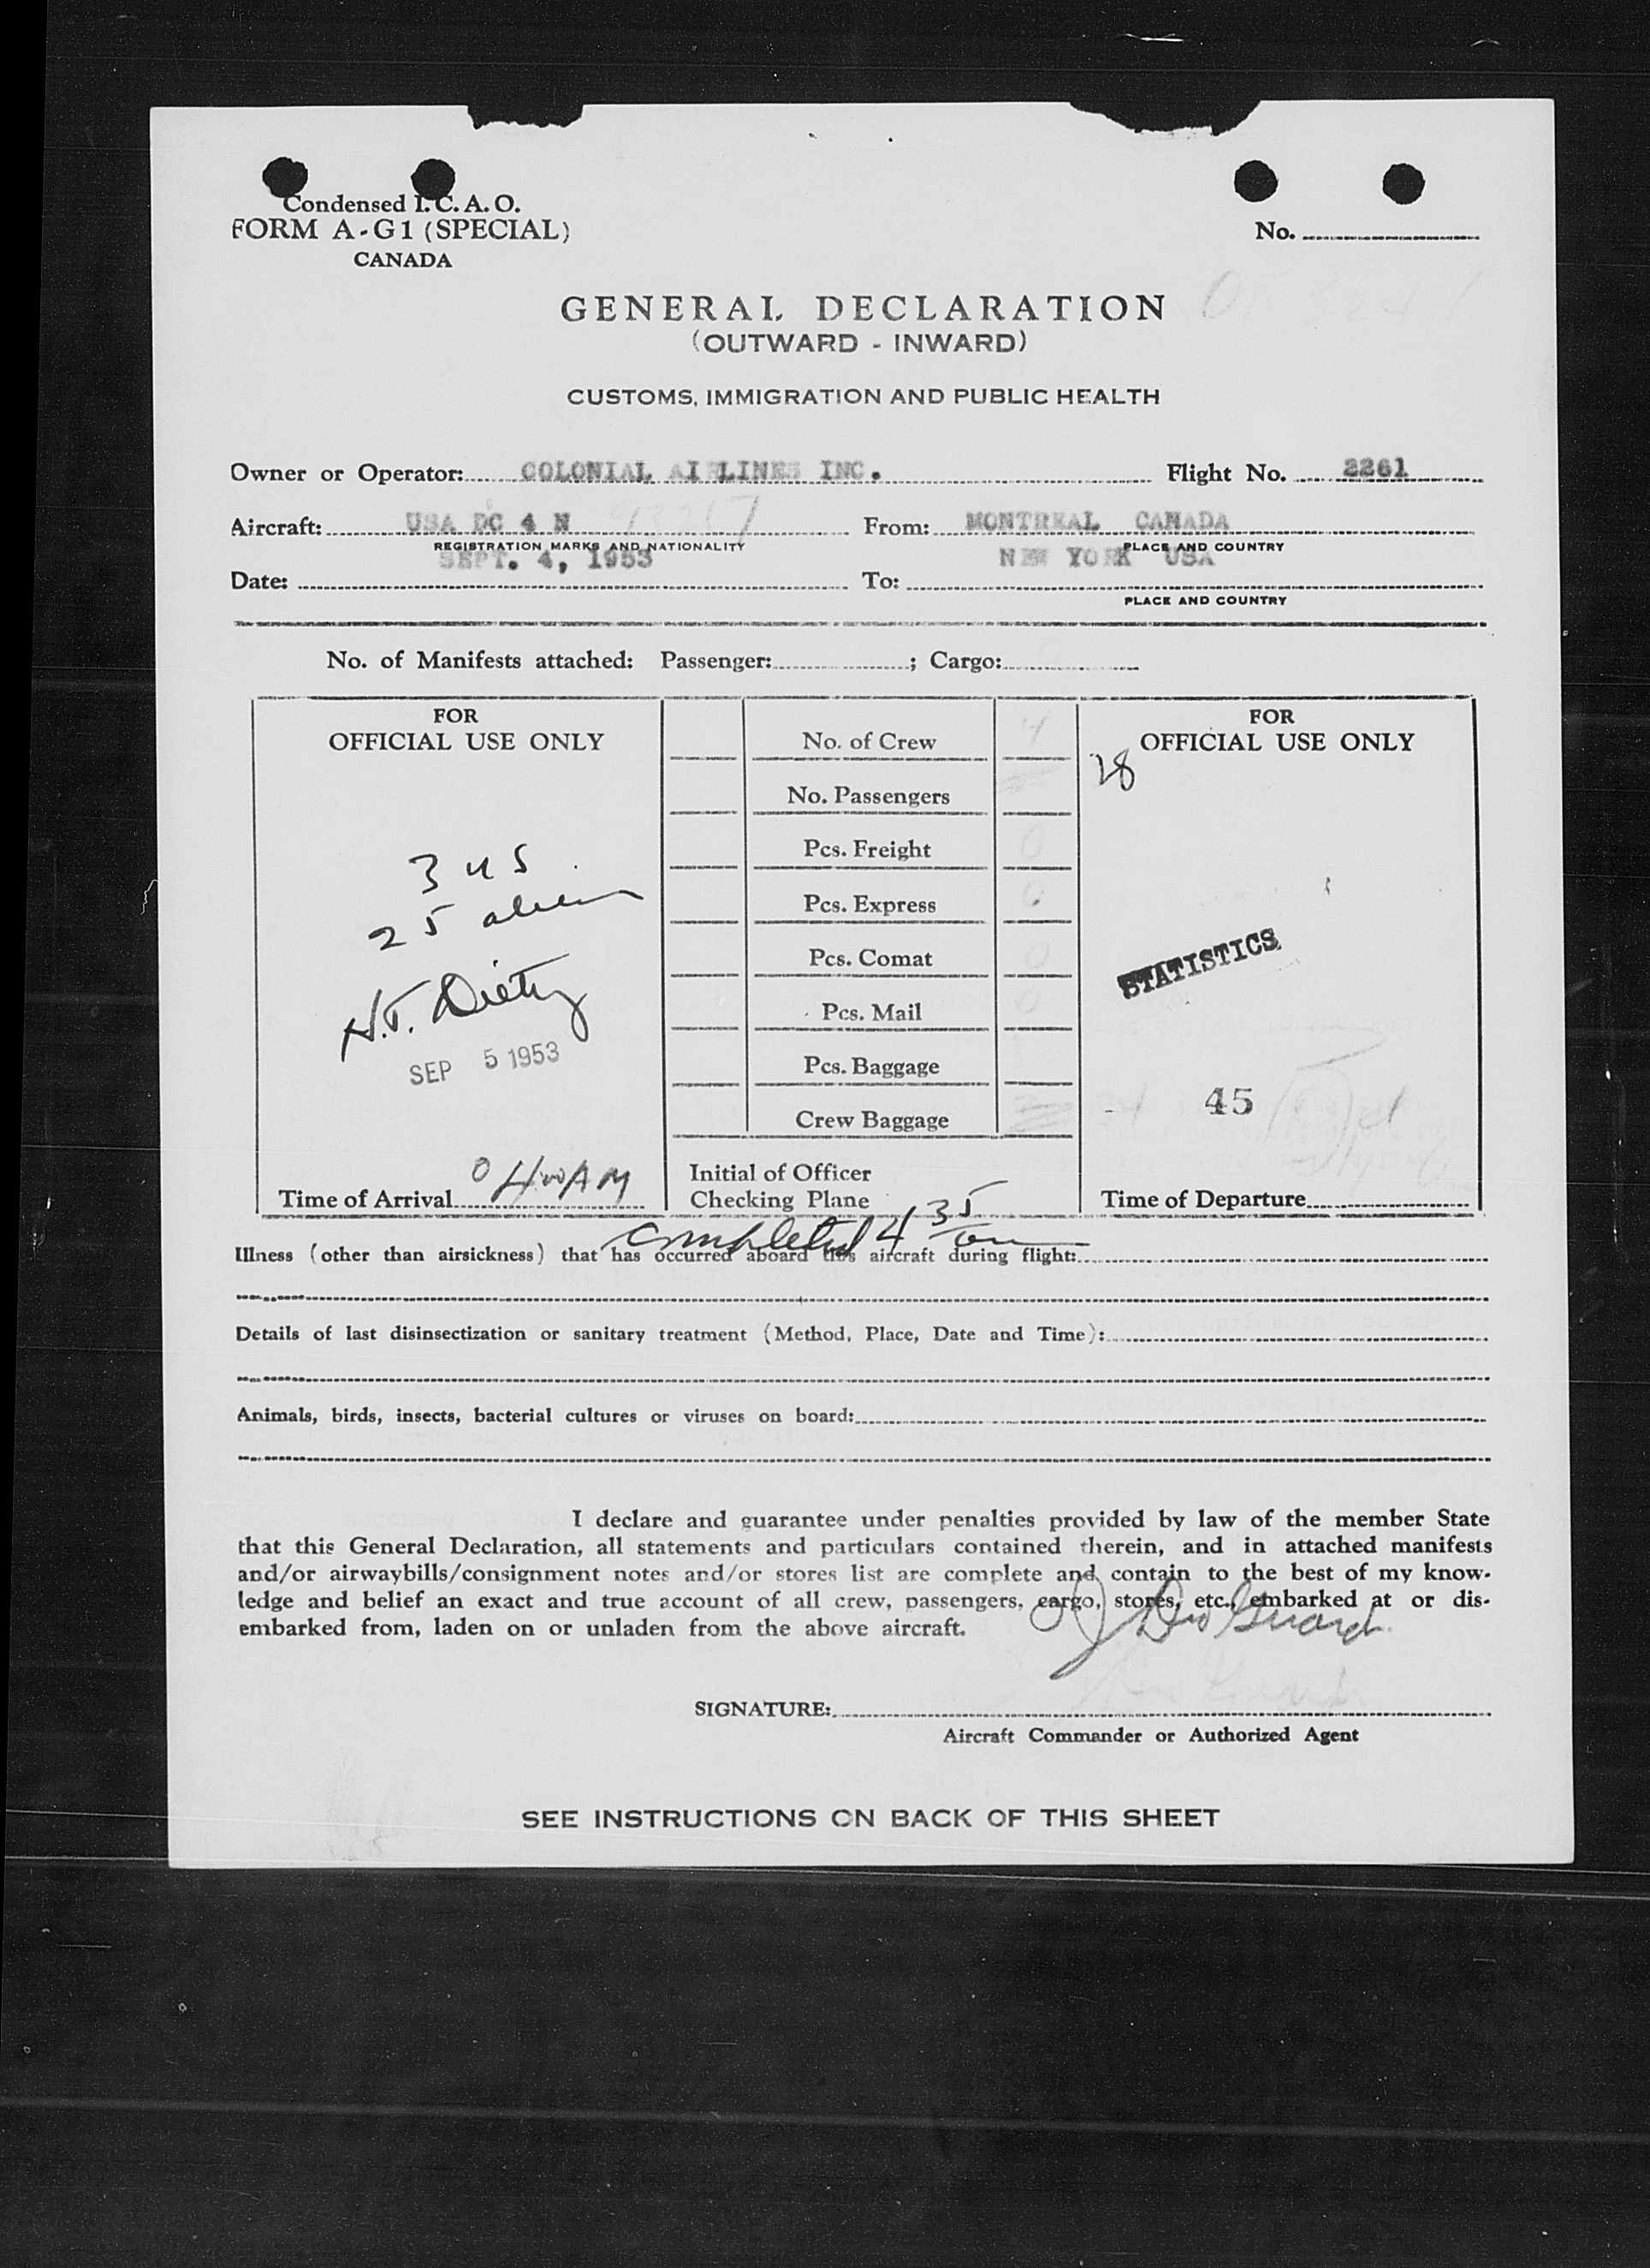 Condensed I.C.A.O.
FORM A-G1 (SPECIAL)
CANADA
No.
GENERAL DECLARATION
(OUTWARD - INWARD)
CUSTOMS, IMMIGRATION AND PUBLIC HEALTH
Owner or Operator: COLONIAL AIRLINES INC. Flight No. 2261
Aircraft: USA DC 4 N From: MONTREAL CANADA
REGISTRATION MARKS AND NATIONALITY PLACE AND COUNTRY
Date: SEPT. 4, 1953 To: NEW YORK USA
PLACE AND COUNTRY
No. of Manifests attached: Passenger: ; Cargo:
FOR
OFFICIAL USE ONLY
3 US
25 alien
N.T. Dietz
SEP 5 1953
Time of Arrival 0400 AM
No. of Crew 4
No. Passengers
Pcs. Freight 0
Pcs. Express 0
Pcs. Comat 0
Pcs. Mail 0
Pcs. Baggage
Crew Baggage
Initial of Officer
Checking Plane
FOR
OFFICIAL USE ONLY
28
STATISTICS
45
Time of Departure
completed 4 35 am
Illness (other than airsickness) that has occurred aboard this aircraft during flight:
Details of last disinsectization or sanitary treatment (Method, Place, Date and Time):
Animals, birds, insects, bacterial cultures or viruses on board:
I declare and guarantee under penalties provided by law of the member State
that this General Declaration, all statements and particulars contained therein, and in attached manifests
and/or airwaybills/consignment notes and/or stores list are complete and contain to the best of my know-
ledge and belief an exact and true account of all crew, passengers, cargo, stores, etc., embarked at or dis-
embarked from, laden on or unladen from the above aircraft.
SIGNATURE:
Aircraft Commander or Authorized Agent
SEE INSTRUCTIONS ON BACK OF THIS SHEET